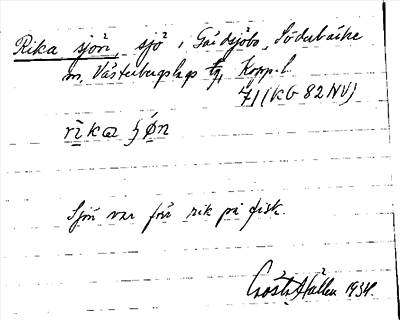 Rika sjön, sjö i Gårdsjöbo, Söderbärke
sn, Västerbergslags tg, Kopp. l.
71 (KG 82 NV)
rika ʃøn
Sjön var förr rik på fisk.
Gösta Hallen 1934.